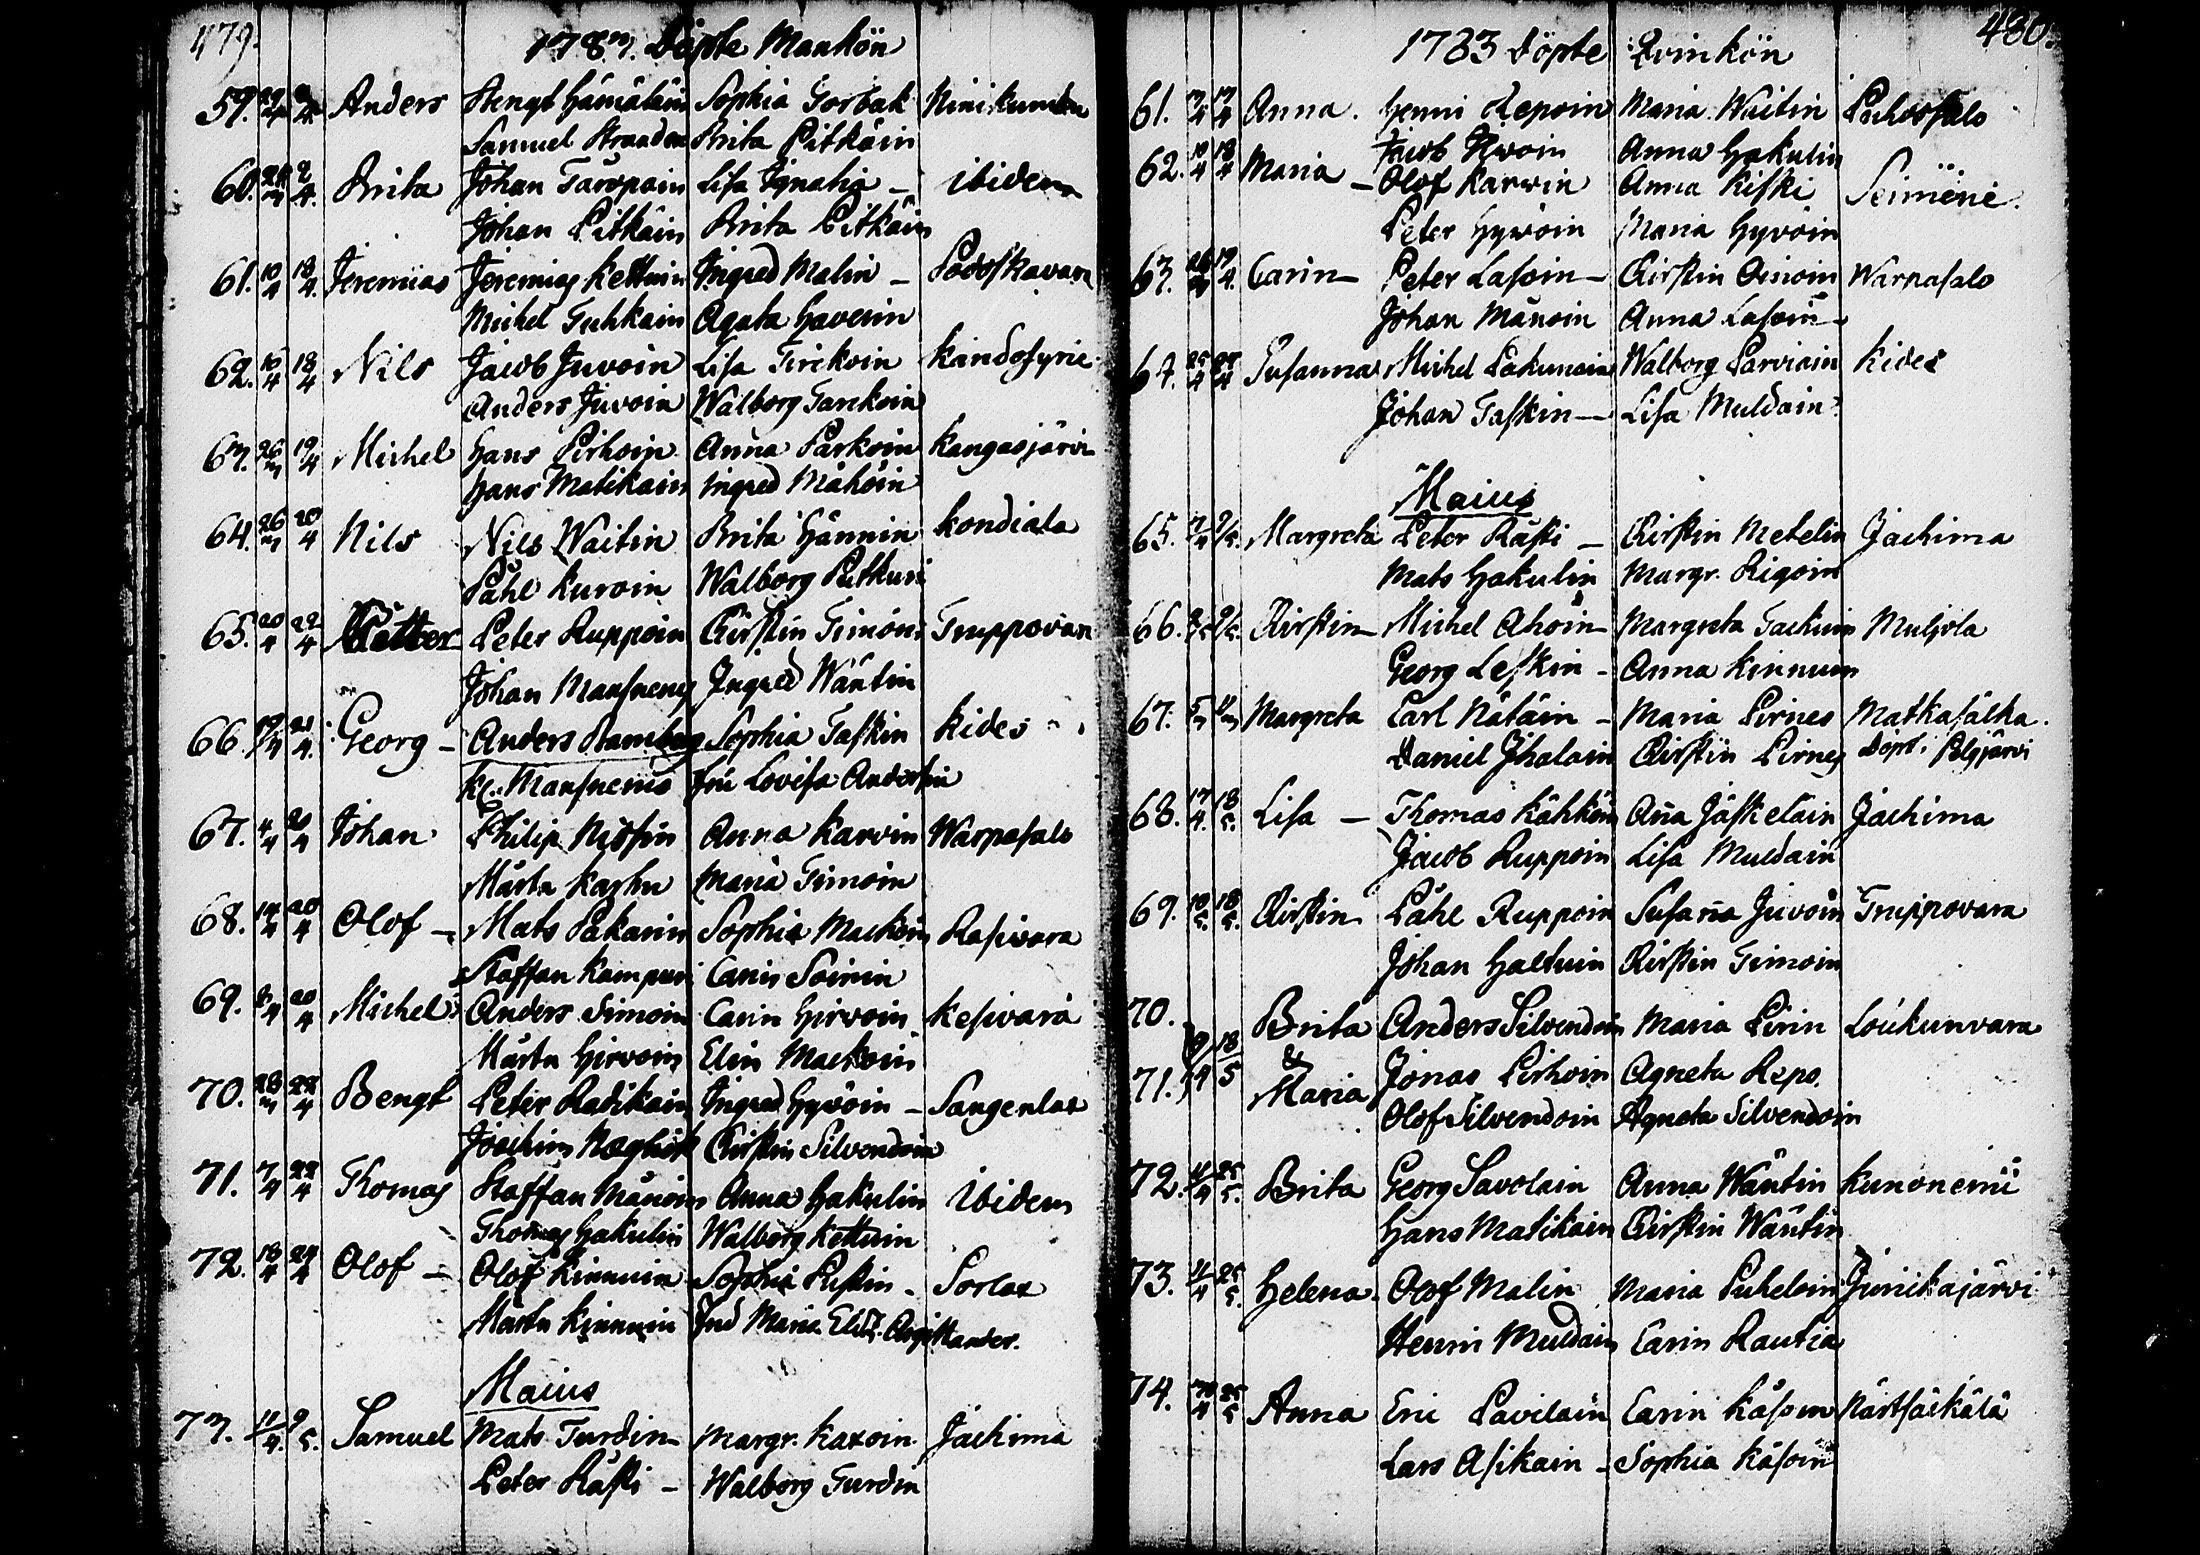 479.
1783. Döpte Mankön
59. 29/3 2/4 Anders Bengt Hämäläin Sophia Torvak Ninikumbu
Samuel Straaden Brita Pitkäin
60. 2/4 Brita Johan Taropain Lisa Ignatia – ibidem
Johan Pitkäin Brita Pitkäin
61. 10/4 18/4 Jeremias Jeremias Kettuin Ingred Malin – Potoskavara
Michel Tuhkain Agata Haverin
62. 16/4 18/4 Nils Jacob Juvoin Lisa Tirckoin Kandosyrie
Anders Juvoin Walborg Tarckoin
63. 26/3 19/4 Michel Hans Pirhoin Anna Parkoin Kangasjärvi
Hans Matikain Ingred Mähöin
64. 26/3 20/4 Nils Nils Waitin Brita Hännin Kondiala
Påhl Kuroin Walborg Putkuri
65. 20/4 22/4 Petter Peter Ruppoin Kirstin Timoin Truppovara
Johan Mansnerus Ingred Wäntin
66. 19/4 21/4 Georg – Anders Ramberg Sophia Taskin Kides
Kr. Mansnerus fru Lovisa Andersin
67. 4/4 20/4 Johan Philip Nissin Anna Karvin Warpasalo
Märta Karhu Maria Timoin
68. 14/4 20/4 Olof – Mats Pakarin Sophia Mackoin Rasivara
Staffan Kampuri Carin Soinin
69. 8/4 20/4 Michel Anders Simoin Carin Hirvoin Kesivara
Märta Hirvoin Elin Mackoin
70. 28/3 22/4 Bengt Peter Radikain Ingred Hyvöin – Sangenlax
Joachim Kirstin Silvendoin
71. 7/4 22/4 Thomas Staffan Mänöin Anna Hakulin Ibidem
Thomas Hakulin Walborg Kettuin
72. 18/4 24/4 Olof – Olof Kinnuin Sophia Pustin – Sorlax
Märta Kinnuin Jud Maria Elis. Argillander.
Maius
73. 11/4. 9/5. Samuel Mats Turdin Margr. Kaxoin Jachima
Peter Räski – Walborg Turdin
480.
1783 Döpte Qvinkön
61. 13/4 17/4 Anna. Henric Repoin Maria Waitin Puhossalo
Jacob Hivoin Anna Hakulin
62. 10/4 18/4 Maria – Olof Karvin Anna Kiski Seimeni.
Peter Hyvöin Maria Hyvöin
63. 26/3 19/4. Carin – Peter Lasoin – Kirstin Oinoin Warpasalo
Johan Mänoin Anna Lasoin
64. 25/4 27/4 Susanna Michel Pakunain Walborg Parviain Kides
Johan Taskin – Lisa Muldain
Maius
65. 9/5. Margreta Peter Räski – Kirstin Metelin Jachima
Mats Hakulin Margr. Rigoin
66. 9/5. Kirstin – Michel Ahoin – Margreta Tackuin Muljola
Georg Leskin – Anna Kinnuin
67. Margreta Carl Nätäin – Maria Pirnes Matkasälkä.
Daniel Ihalain Kirstin Pirnes Döpt i Pelgjärvi
68. 17/4. 18/5. Lisa – Thomas Kähköin Anna Jäskeläin Jachima
Jacob Ruppoin Lisa Muldain
69. 10/5. 18/5. Kirstin Påhl Ruppoin Susanna Juvoin Truppovara
Johan Haltuin Kirstin Timoin
70. Brita Anders Silvendoin Maria Pirin Loukunvara
& 18/5
71. Maria Jonas Pirhoin Agneta Repo.
Olof Silvendoin Agneta Silvendoin
72. 11/4 25/5. Brita Georg Savolain Anna Wäntin Kunonemi
Hans Matikain Kirstin Wäntin
73. 11/4 25/5. Helena. Olof Malin Maria Puheloin Junikajärvi
Henric Muldain Carin Rautia
74. 30/4 25/5 Anna Eric Pavilain Carin Käsoin Närtsäkälä
Lars Asikain – Sophia Käsoin